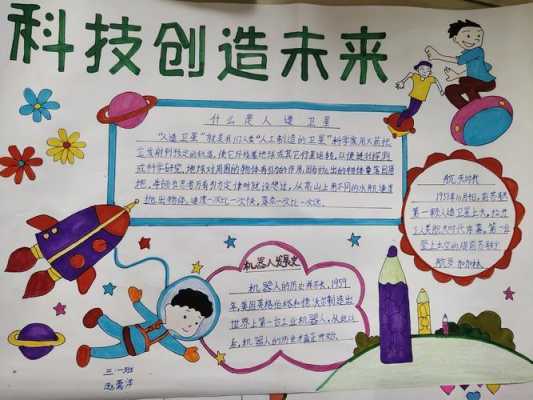 科技创造未来
什么是人造卫星
"人造卫星"就是我们人类"人工制造的卫星"科学家用火箭把
它发射到预定的轨道,使它环绕着地球或其它行星运转,以便进行探测
或科学研究。地球对周围的物体有引力的作用,因而抛出的物体要落回地
面,
抛出物体,速度一次比一次快,落点一次比一次远
航天时代
1957年10月4日,前苏联
第一颗人造卫星上天,
了人类航天时代序幕。第一位
登上太空的
航员加加林
机器人发展史
机器人的历史并不长,1959
年,美国英格伯格和德沃尔制造出
世界上第一台工业机器人,从此以
后,机器人的历史才真正开始。
三·一班